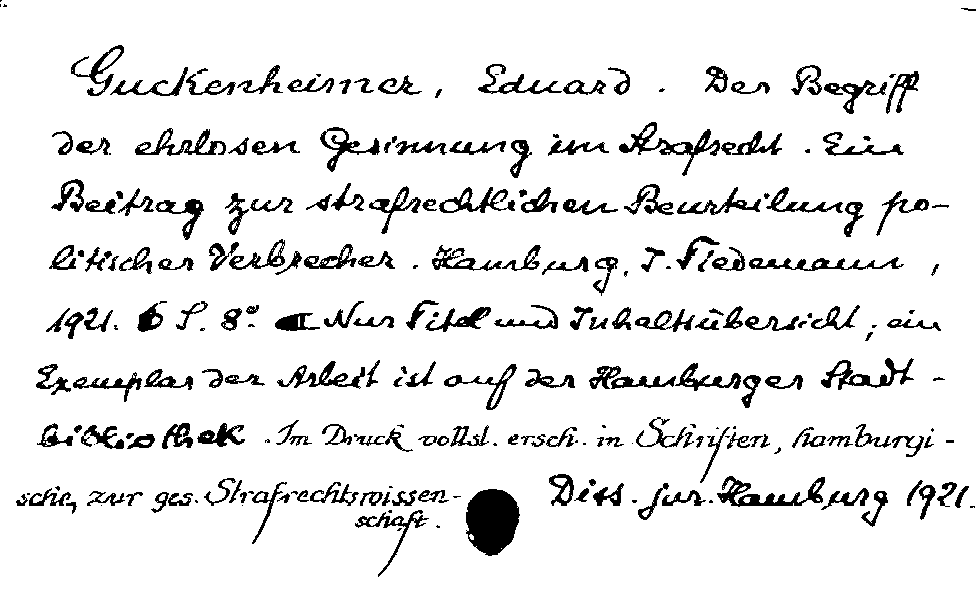 Guckenheimer, Eduard. Der Begriff
der ehrlosen Gesinnung im Strafrecht. Ein
Beitrag zur strafrechtlichen Beurteilung po-
litischer Verbrecher. Hamburg, J. Tiedemann,
1921. 6 S. 8° Nur Titel und Inhaltsübersicht; ein
Exemplar der Arbeit ist auf der Hamburger Stadt-
bibliothek. Im Druck vollst. ersch. in Schriften, hamburgi-
sche, zur ges. Strafrechtswissen-
schaft.
Diss. jur. Hamburg 1921.